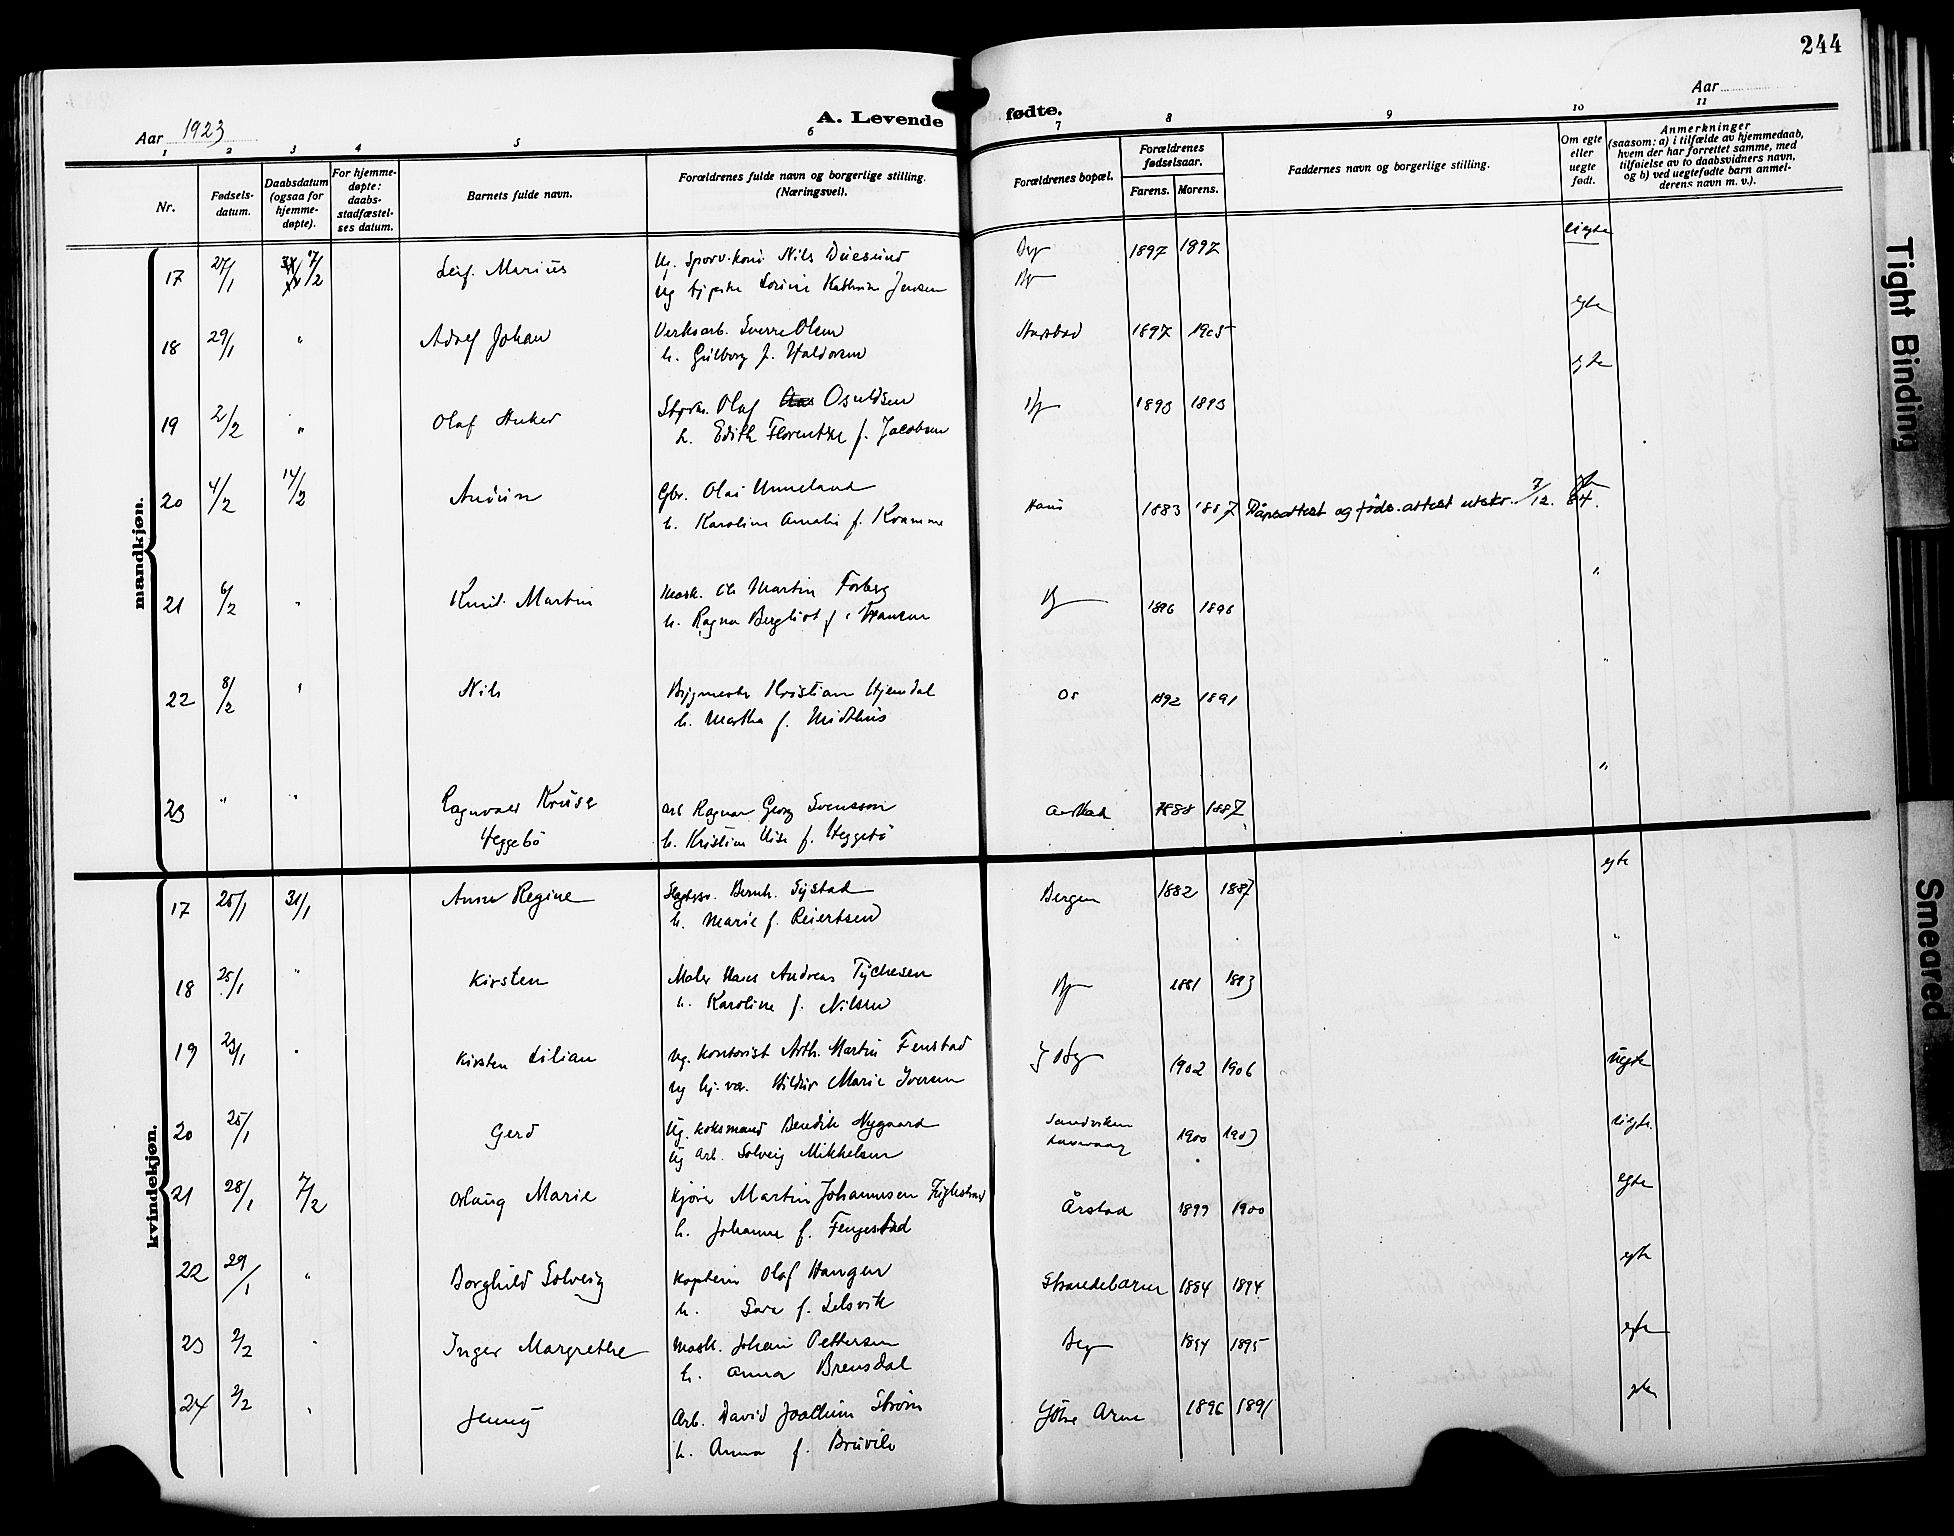 244
Aar 1923
A. Levende fødte.
Aar
1 2 3 4 5 6 7 8 9 10 11
Nr.
Fødsels-
datum.
Daabsdatum
(ogsaa for
hjemme-
døpte).
For hjemme-
døpte:
daabs-
stadfæstel-
ses datum.
Barnets fulde navn.
Forældrenes fulde navn og borgerlige stilling.
(Næringsvei).
Forældrenes bopæl.
Forældrenes
fødselsaar.
Farens. Morens.
Faddernes navn og borgerlige stilling.
Om egte
eller
uegte
født.
Anmerkninger
(saasom: a) i tilfælde av hjemmedaab,
hvem der har forrettet samme, med
tilføielse av to daabsvidners navn,
og b) ved uegtefødte barn anmel-
derens navn m. v.).
mandkjøn.
17 27/1 7/2 Leif Marius Ug. Nils Duesund 1897 1897 uegte
Ug Lovine Kathrine Jensen
18 29/1 " Adolf Johan Verksarb. Sverre Olsen 1897 1905 egte
h. Gulborg f. Haldorsen
19 2/2 " Olaf Olaf Osuldsen 1893 1893 egte
h. Edith Florentse f. Jacobsen
20 4/2 14/2 Gbr. Olai Unneland Haus 1883 1887 Dåpsattest og føds.attest utskr. 7/12. 84.
h. Karoline Amalie f. Kvamme
21 6/2 " Knut Martin Mask. Martin Forberg 1896 1896 "
h. Ragna Bergliot f. Hansen
22 8/2 " Nils Bygmester Kristian Hjemdal Os 1892 1891 "
h. Martha f. Midthus
23 " " Ragnvald Kruse Arb Ragnar Georg Svensson Aarstad 1888 1887 "
Heggebø h. Kristine f. Heggebø
kvindekjøn.
17 25/1 31/1 Anna Regine Bernh. Systad Bergen 1882 1887 egte
h. Marie f. Reiertsen
18 25/1 " Kirsten Maler Hans Andreas Tychesen 1881 1893 "
h. Karoline f. Nilsen
19 23/1 " Kirsten Lilian Ug. kontorist Arth. Martin Fenstad 1902 1906 uegte
Ug Hildur Marie Iversen
20 25/1 Gerd Ug. Bendik Nygaard Sandviken 1900 1903 uegte.
Ug Arb. Solveig Mikkelsen
21 28/1 7/2 Aslaug Marie Kjører Martin Johannesen Årstad 1899 1900 egte
h. Johanne f. Fengestad
22 29/1 " Borghild Solveig Kaptein Olaf Haugen Strandebarm 1884 1894 egte
h. Sara f. Selsvik
23 2/2 " Inger Margrethe Mask. Johan Pettersen 1894 1895 egte
h. Anna Brensdal
24 2/2 " Jenny Arb. David Joachim Strøm Ytre Arne 1896 1891 egte
h. Anna f. Bruvik
Tight Binding
Smeared